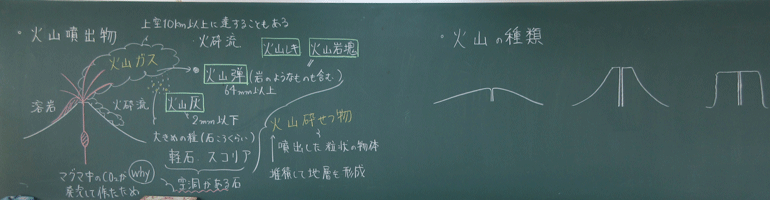 上空10km以上に達することもある
・火山噴出物
火砕流
火山レキ
火山岩塊
火山ガス
火山弾(岩のようなものも含む)
64mm以上
溶岩
火砕流
火山灰
2mm以下
大きめの粒(石ころくらい)
軽石 スコリア
空洞がある石
why
マグマ中のCO₂が
発泡して体ため
火山砕せつ物
噴出した粒状の物体
堆積して地層を形成
・火山の種類